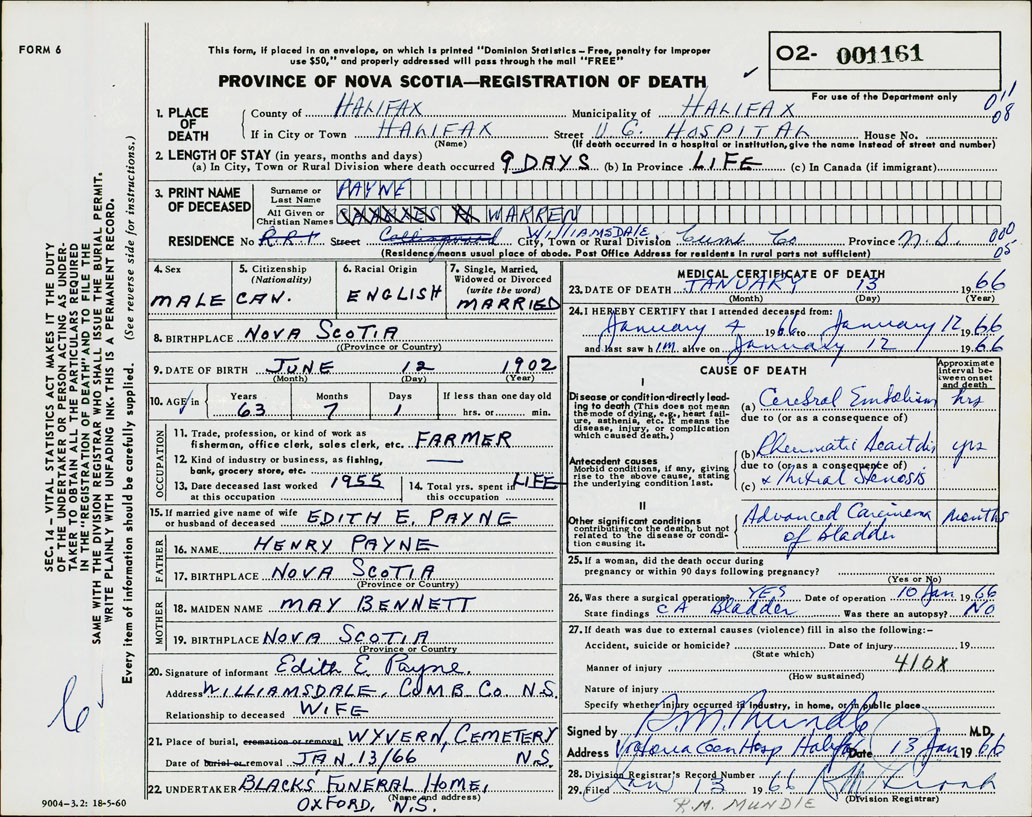 FORM 6
This form, if placed in an envelope, on which is printed "Dominion Statistics – Free, penalty for improper
use $50," and properly addressed will pass through the mail "FREE"
PROVINCE OF NOVA SCOTIA—REGISTRATION OF DEATH
02- 001161
For use of the Department only
011
08
1. PLACE OF DEATH
County of HALIFAX Municipality of HALIFAX
If in City or Town HALIFAX Street V. G. HOSPITAL House No.
(Name) (If death occurred in a hospital or institution, give the name instead of street and number)
2. LENGTH OF STAY (in years, months and days)
(a) In City, Town or Rural Division where death occurred 9 DAYS (b) In Province LIFE (c) In Canada (if immigrant)
3. PRINT NAME OF DECEASED
Surname or Last Name PAYNE
All Given or Christian Names CHARLES R WARREN
RESIDENCE No R.R.1 Street Collingwood WILLIAMSDALE City, Town or Rural Division Cumb Co Province N.S.
000
05
(Residence means usual place of abode. Post Office Address for residents in rural parts not sufficient)
4. Sex MALE
5. Citizenship (Nationality) CAN.
6. Racial Origin ENGLISH
7. Single, Married, Widowed or Divorced (write the word) MARRIED
8. BIRTHPLACE NOVA SCOTIA
(Province or Country)
9. DATE OF BIRTH JUNE 12 1902
(Month) (Day) (Year)
10. AGE in Years Months Days If less than one day old
63 7 1 hrs. or min.
OCCUPATION
11. Trade, profession, or kind of work as
fisherman, office clerk, sales clerk, etc. FARMER
12. Kind of industry or business, as fishing,
bank, grocery store, etc. —
13. Date deceased last worked at this occupation 1955
14. Total yrs. spent in this occupation LIFE
15. If married give name of wife
or husband of deceased EDITH E. PAYNE
FATHER
16. NAME HENRY PAYNE
17. BIRTHPLACE NOVA SCOTIA
(Province or Country)
MOTHER
18. MAIDEN NAME MAY BENNETT
19. BIRTHPLACE NOVA SCOTIA
(Province or Country
20. Signature of informant Edith E. Payne.
Address WILLIAMSDALE, CUMB. Co N.S.
Relationship to deceased WIFE
21. Place of burial, cremation or removal WYVERN, CEMETERY
Date of burial or removal JAN. 13/66 N.S.
22. UNDERTAKER BLACKS' FUNERAL HOME,
(Name and address)
OXFORD, N.S.
MEDICAL CERTIFICATE OF DEATH
23. DATE OF DEATH JANUARY 13 1966
(Month) (Day) (Year)
24. I HEREBY CERTIFY that I attended deceased from:
January 4 1966 to January 12 1966
and last saw him alive on January 12 1966
CAUSE OF DEATH
Approximate interval between onset and death
I
Disease or condition directly leading to death (This does not mean the mode of dying, e.g., heart failure, asthenia, etc. It means the disease, injury, or complication which caused death.)
(a) Cerebral Embolism hrs
due to (or as a consequence of)
Antecedent causes
Morbid conditions, if any, giving rise to the above cause, stating the underlying condition last.
(b) Rheumatic Carditis yrs
due to (or as a consequence of)
(c) & Mitral Stenosis
II
Other significant conditions
contributing to the death, but not related to the disease or condition causing it.
Advanced Carcinoma months
of bladder
25. If a woman, did the death occur during
pregnancy or within 90 days following pregnancy?
(Yes or No)
26. Was there a surgical operation? YES Date of operation 10 Jan 1966
State findings CA Bladder Was there an autopsy? NO
27. If death was due to external causes (violence) fill in also the following:–
Accident, suicide or homicide? Date of injury 19
(State which)
Manner of injury 410X
(How sustained)
Nature of injury
Specify whether injury occurred in industry, in home, or in public place
Signed by R.M. Mundle M.D.
Address Victoria Gen Hosp Halifax Date 13 Jan. 1966
28. Division Registrar's Record Number
29. Filed Jan 13 1966
(Division Registrar)
R.M. MUNDIE
SEC. 14 – VITAL STATISTICS ACT MAKES IT THE DUTY
OF THE UNDERTAKER OR PERSON ACTING AS UNDER-
TAKER TO OBTAIN ALL THE PARTICULARS REQUIRED
IN THE "REGISTRATION OF DEATH" AND TO FILE THE
SAME WITH THE DIVISION REGISTRAR WHO SHALL ISSUE THE BURIAL PERMIT.
WRITE PLAINLY WITH UNFADING INK. THIS IS A PERMANENT RECORD.
Every item of information should be carefully supplied. (See reverse side for instructions.)
9004-3.2: 18-5-60